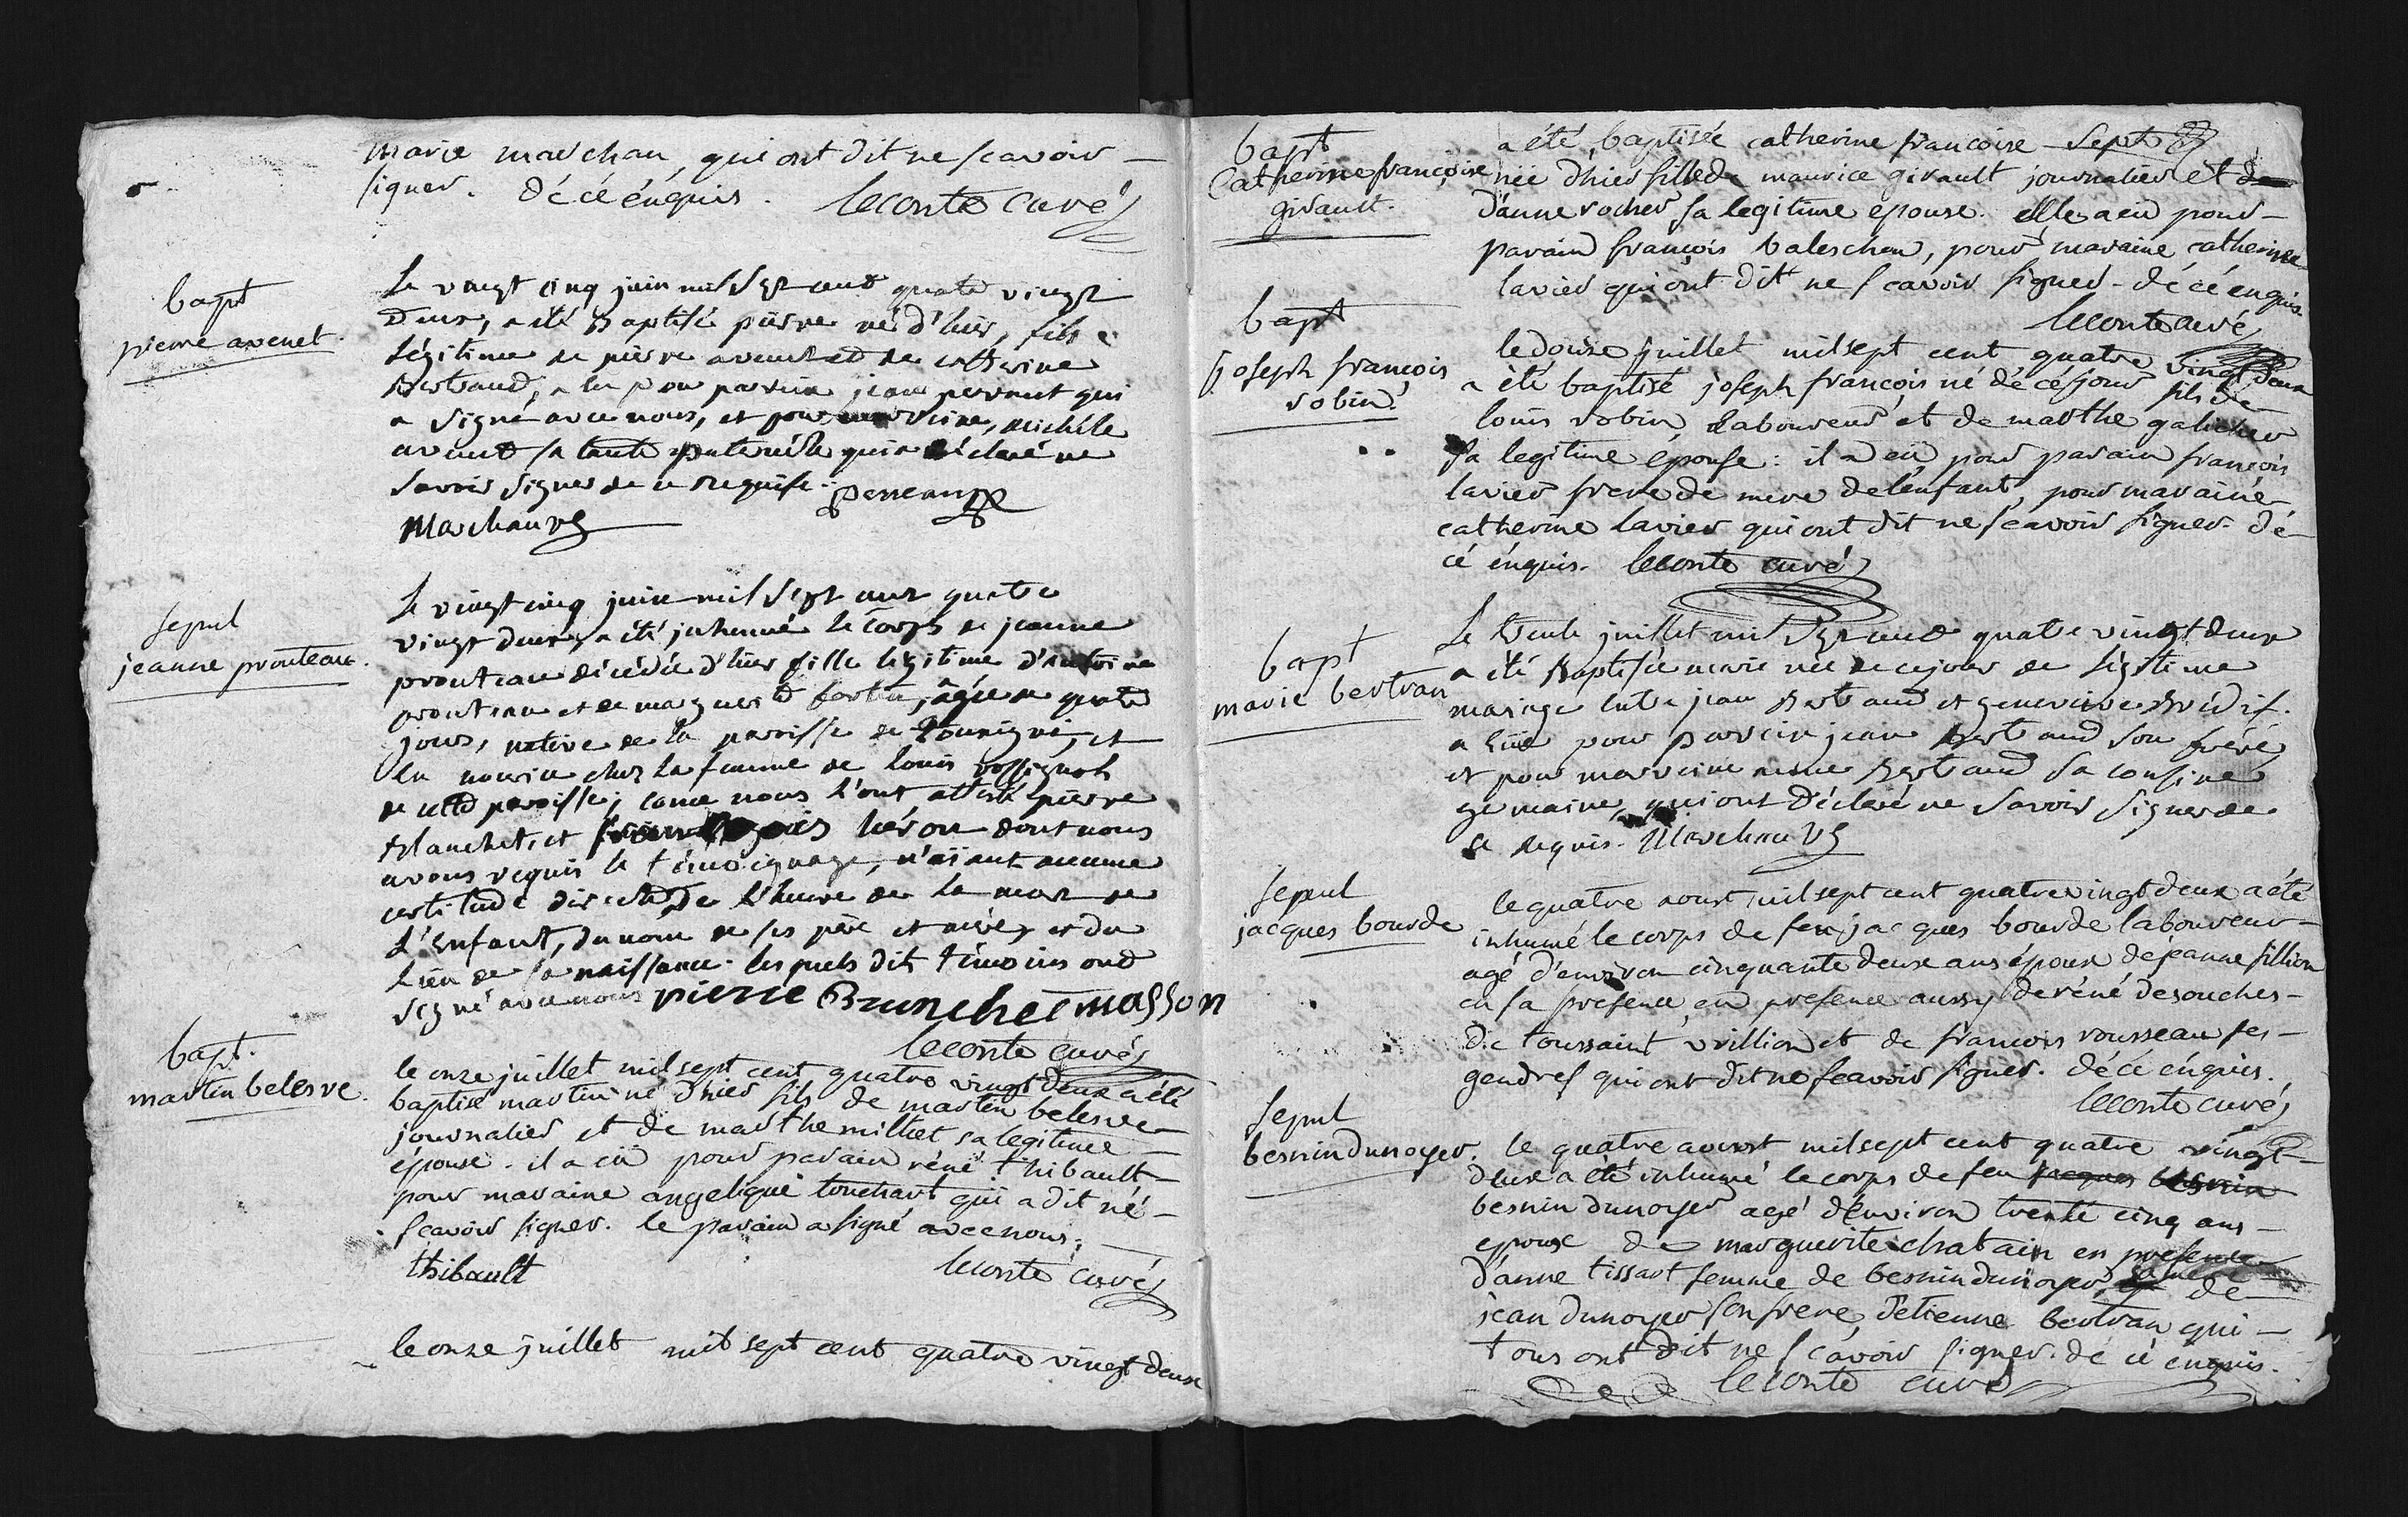 marie marchau, qui ont dit ne scavoir
signer. dé cé énquis. leconte curé
bapt
pierre avenet.
Le vingt cinq juin mil sept cent quatre vingt
Deux, a été Baptisé pierre né d'hier, fils
légitime de pierre avenet et de catherine
Bertrand, a eu pour parrein jean perraut qui
a signé avec nous, et pour marreine, michéle
avenet sa tante paternélle qui a déclaré ne
savoir signer de ce requise.
Marchau
sepul
jeanne prouteau.
Le vingt cinq juin mil sept cent quatre
vingt deux, a été inhumé le corps de jeanne
prouteau décédée d'hier fille légitime d'antoine
prouteau et de marguerite, âgée de quatre
jours, native de la paroisse de, et
en nourice chez la femme de louis rossignol
de cette paroisse; come nous l'ont attesté pierre
Blanchet, et héron dont nous
avons requis le témoignage, n'aïant aucune
certitude directe De l'heure de la mort de
L'Enfant, du nom de ses père et mère, et du
lieu de sa naissance. lesquels dits témoins ont
signé avec nous pierre Brunchet masson
leconte curé
bapt.
martin belesve.
le onze juillet mil sept cent quatre vingt deux a été
baptisé martin né d'hier fils de martin belesve
journalier et de marthe milliet sa legitime
épouse. il a eü pour parain réné thibault
pour maraine angelique touchart qui a dit né
scavoir signer. le parain a signé avec nous;
thibault leconte curé
le onze juillet mil sept cent quatre vingt deux
bapt
Catherine françoise
girault.
a été baptisée catherine francoise
née d'hier fille de maurice girault journalier et de
d'anne rocher sa legitime epouse. elle a eü pour
parain françois baleschou, pour maraine catherine
lavier qui ont dit ne scavoir signer. dé cé enquis.
leconte curé
bapt
joseph françois
robin.
le douze juillet mil sept cent quatre vingt deux
a été baptisé joseph françois né dé cé jour fils de
louis robin Laboureur et de marthe
sa legitime épouse: il a eü pour parain françois
lavier frere de mere de l'enfant, pour maraine
catherine lavier qui ont dit ne scavoir signer. dé
cé énquis. leconte curé
bapt
marie bertran
Le trente juillet mil sept cent quatre vingt deux
a été Baptisée marie née de ce jour de légitime
mariage entre jean Bertrand et genevieve Brédif.
a eüe pour parrein jean Bertrand son frère
et pour marreine Bertrand sa cousine
germaine, qui ont déclaré ne savoir signer de
ce requis. Marchau
sepul
jacques bourde
le quatre aoust mil sept cent quatre vingt deux a été
inhumé le corps de feu jacques bourde laboureur
agé d'environ cinquante deux ans époux de jeanne fillion
en sa presence, en presence aussy de réné desouches
de toussaint vrillion et de francois rousseau ses
gendres qui ont dit ne scavoir signer. dé cé énquis.
leconte curé
sepul
besnin dunoyer.
le quatre aoust mil sept cent quatre vingt
deux a été inhumé le corps de feu jacques besnin
besnin dunoyer agé d'environ trente cinq ans
epoux de marguerite chatain en presence
d'anne tissart femme de besnin dunoyer, sa mere de
jean dunoyer son frere, d'etienne bertran qui
tous ont dit ne scavoir signer. dé cé énquis.
leconte curé